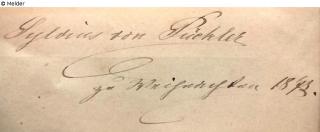 © Helder
Sylvius von Pückler
zu Weihnachten 1873.